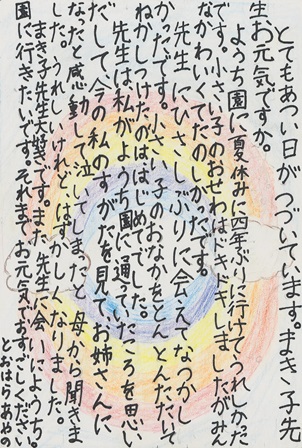 とてもあつい日がつづいています。まき子先
生お元気ですか。
ようち園に夏休みに四年ぶりに行けてうれしかった
です。小さい子のおせわはドキドキしましたがみん
なかわいくてたのしかったです。
先生にひさしぶりに会えてなつかし
かったです。小さい子のおなかをとんとんたたいて
ねかしつけたのははじめてでした。
先生は私がようち園に通ってたころを思い
だして今の私のすがたを見てお姉さんに
なったと感動して泣いてしまったと母から聞きま
した。うれしいけれどはずかしくなりました。
まき子先生大好きです。また先生に会いにようち
園に行きたいです。それまでお元気でいますように。
とおはらあやの